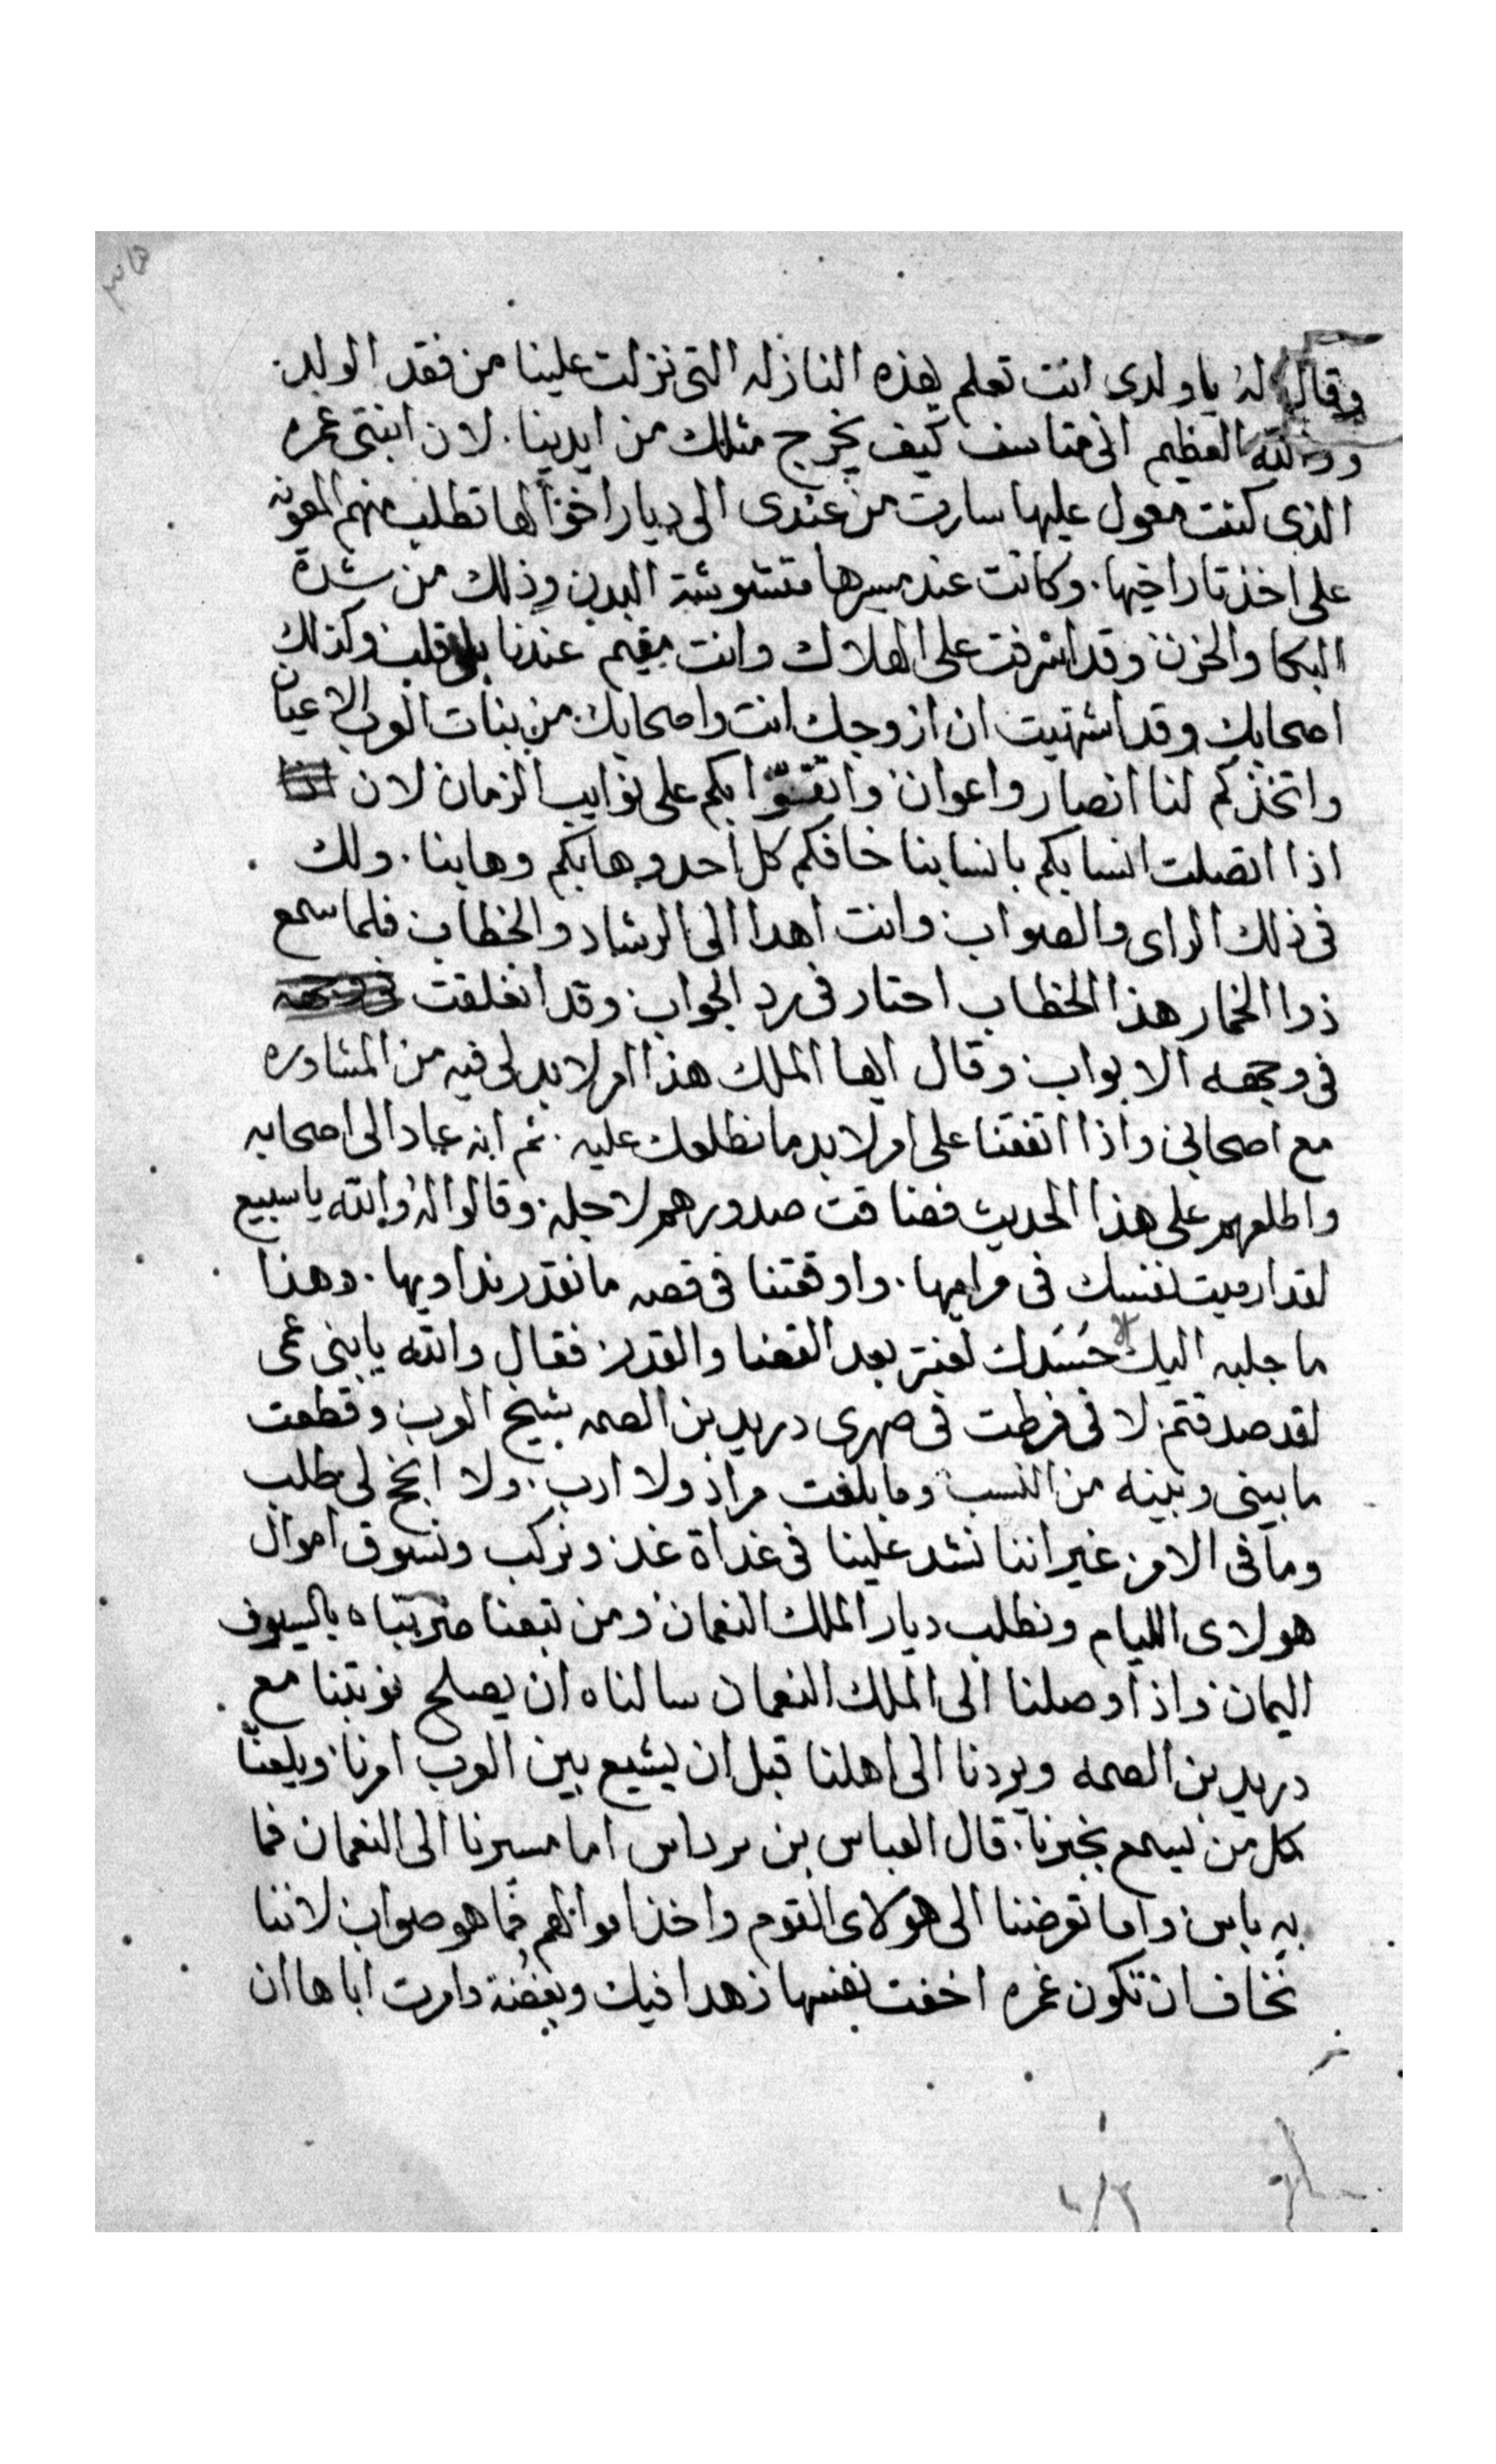 وقال له يا ولدى انت تعلم بهذه النازله التى نزلت علينا من فقد الولد
والله العظيم انى متاسف كيف يخرج مثلك من ايدينا. لان ابنتى غمره
الذى كنت معول عليها سارت من عندى الى ديار اخوالها تطلب منهم المعونه
على اخذ تار اخيها. وكانت عند مسيرها متشوشة البدن وذلك من شدة
البكا والحزن وقد اشرفت على الهلاك وانت مقيم عندنا بلا قلب وكذلك
اصحابك وقد اشتهيت ان ازوجك انت واصحابك من بنات العرب الاعيان
واتخذكم لنا انصار واعوان واتقوّا بكم على نوايب الزمان لان
اذا اتصلت انسابكم بانسابنا خافكم كل احد وهابكم وهابنا. ولك
فى ذلك الراى والصواب وانت اهدا الى الرشاد والخطاب فلما سمع
ذوا الخمار هذا الخطاب احتار فى رد الجواب وقد انغلقت
فى وجهه الابواب وقال ايها الملك هذا امر لا بد لى فيه من المشاوره
مع اصحابى واذا اتفقنا على امر لا بد ما نطلعك عليه. ثم انه عاد الى اصحابه
واطلعهم على هذا الحديث فضاقت صدورهم لاجله وقالوا له والله يا سبيع
لقد ارميت نفسك فى مراميها. واوقعتنا فى قصه ما نقدر نداويها. وهذا
ما جلبه اليك الا حسدك لعنتر بعد القضا والقدر فقال والله يا بنى عمى
لقد صدقتم لانى فرطت فى صهرى دريد بن الصمه شيخ العرب وقطعت
ما بينى وبينه من النسب وما بلغت مراد ولا ارب. ولا انجح لى طلب
وما فى الامر غير اننا نشد علينا فى غداة غد ونركب ونسوق اموال
هولاى الليام ونطلب ديار الملك النعمان ومن تبعنا ضربتاه بالسيوف
اليمان واذا وصلنا الى الملك النعمان سالناه ان يصلح نوبتنا مع
دريد بن الصمه ويردنا الى اهلنا قبل ان يشيع بين العرب امرنا ويلعنّا
كل من يسمع بخبرنا. قال العباس بن مرداس اما مسيرنا الى النعمان فما
به باس واما تعرضنا الى هولاى القوم واخذ اموالهم فما هو صواب لاننا
نخاف ان تكون غمره اخفت نفسها زهدا فيك وبغضة وامرت اباها ان